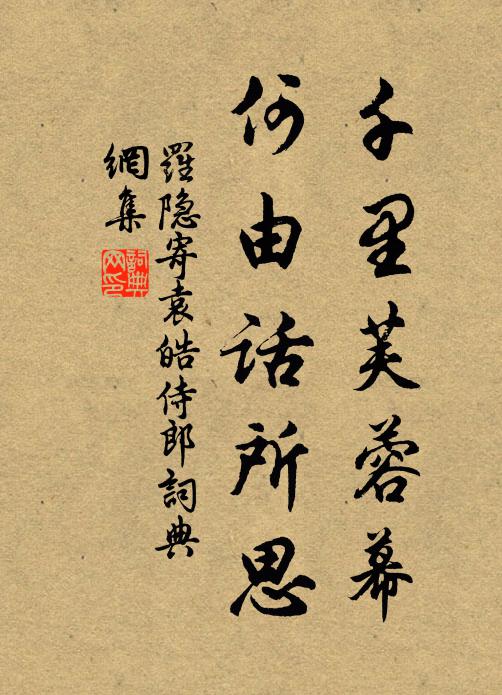 千里芙蓉幕
何由話所思
羅隐寄袁皓侍郎詞典
網集
詞典网印